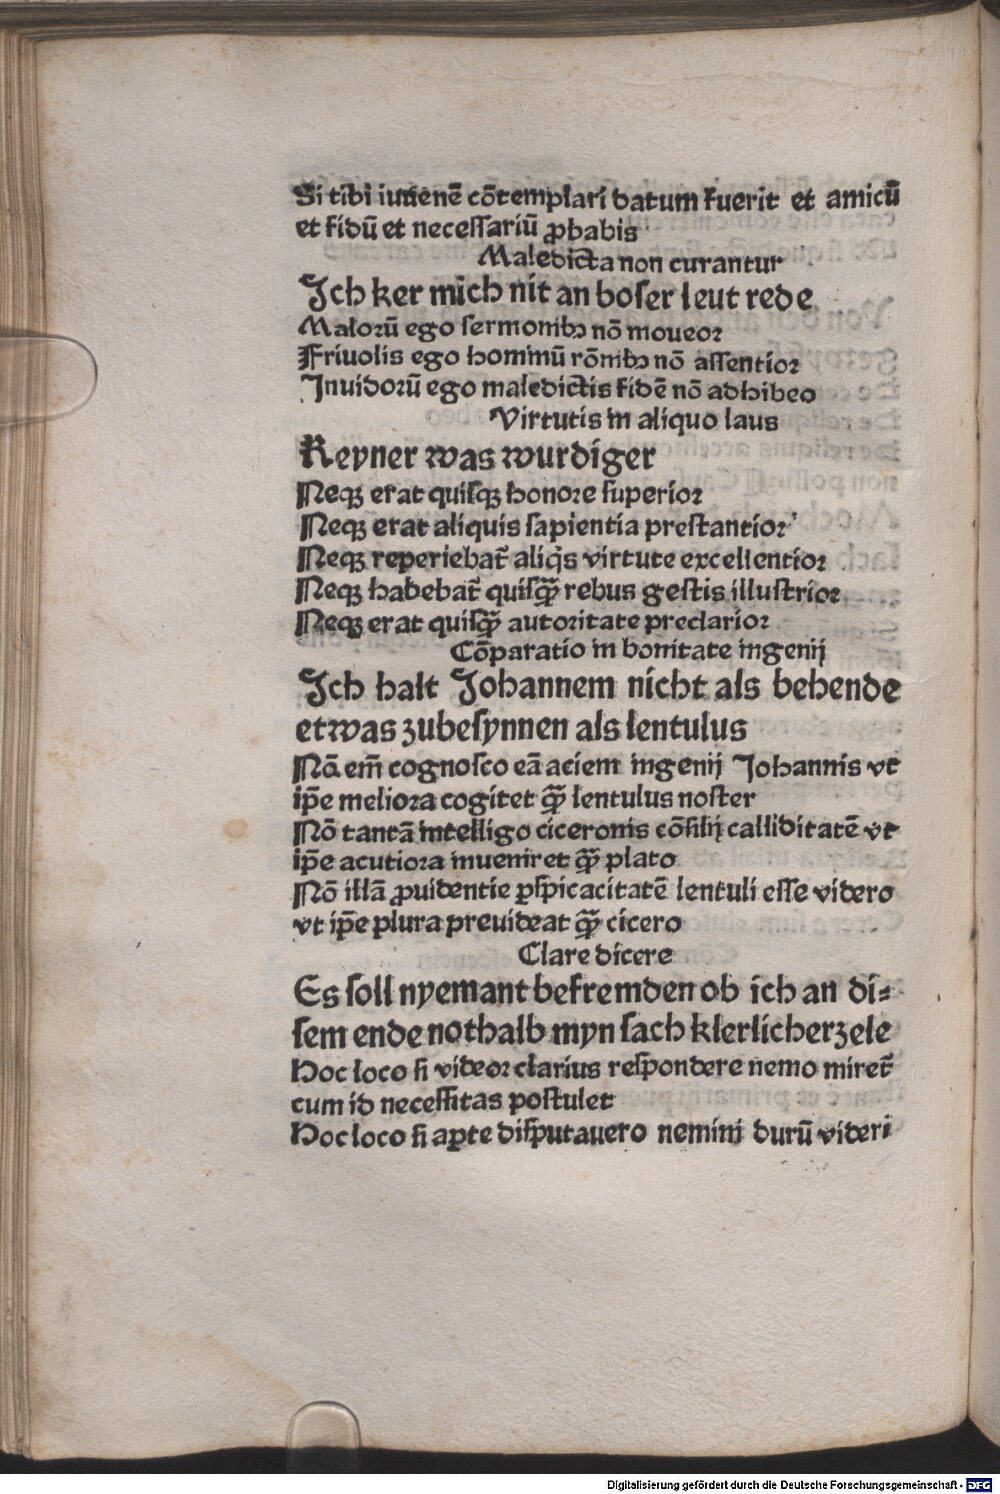 Si tibi iuuenē cōtemplari datum fuerit et amicū
et fidū et necessariū ꝓbabis
Maledicta non curantur
Ich ker mich nit an boser leut rede
Malorū ego sermonibꝫ nō moueor
Friuolis ego hominū rōnibꝫ nō assentior
Inuidorū ego maledictis fidē nō adhibeo
Virtutis in aliquo laus
Reyner was wurdiger
Neqꝫ erat quisqꝫ honore superior
Neqꝫ erat aliquis sapientia prestantior
Neqꝫ reperiebat᷑ aliq̇s virtute excellentior
Neqꝫ habebat᷑ quisqꝫ̄ rebus gestis illustrior
Neqꝫ erat quisqꝫ̄ autoritate preclarior
Cōparatio in bonitate ingenij
Ich halt Johannem nicht als behende
etwas zubesynnen als lentulus
Nā em̄ cognosco eā aciem ingenij Johannis vt
ip̄e meliora cogitet qꝫ̄ lentulus noster
Nō tantā intelligo ciceronis cōsilij calliditatē vt
ip̄e acutiora inueniret qꝫ̄ plato
Nō illā ꝓuidentie ꝑspicacitatē lentuli esse videro
vt ip̄e plura preuideat qꝫ̄ cicero
Clare dicere
Es soll nyemant befremden ob ich an di⸗
sem ende nothalb myn sach klerlicher zele
Hoc loco si videor clarius respondere nemo miret᷑
cum id necessitas postulet
Hoc loco si aꝑte disputauero nemini durū videri
Digitalisierung gefördert durch die Deutsche Forschungsgemeinschaft - DFG